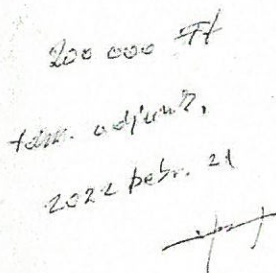 200 000 Ft
tám. adjunk,
2022 febr. 21